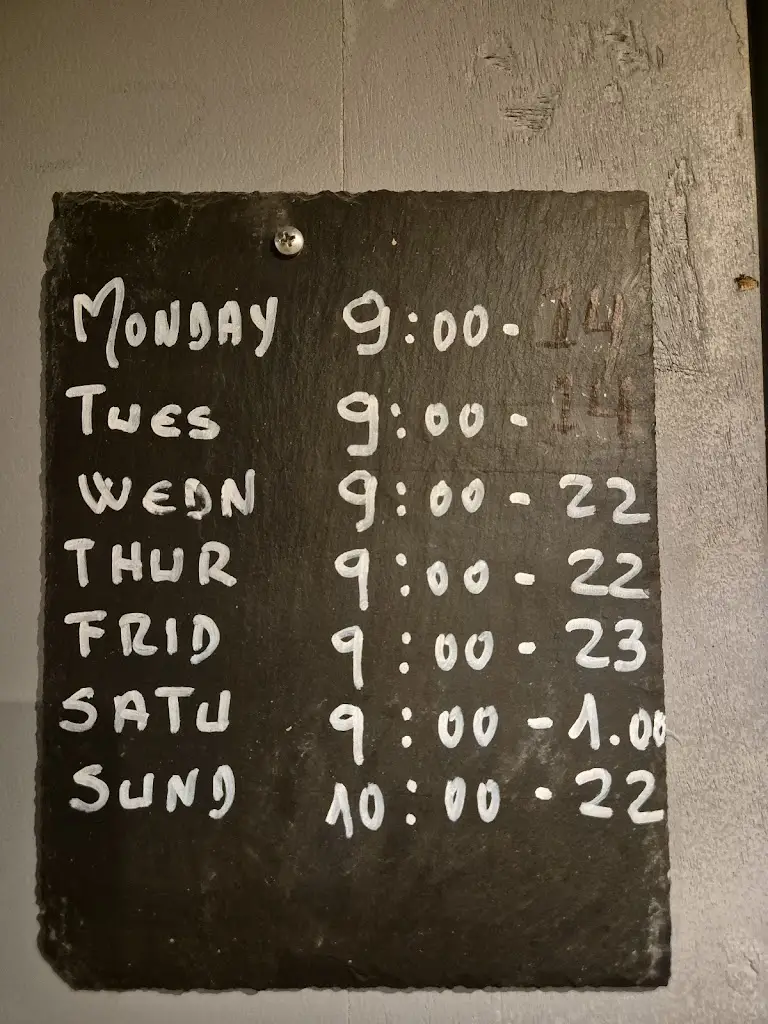 MONDAY 9:00 - 14
TUES 9:00 - 14
WEDN 9:00 - 22
THUR 9:00 - 22
FRID 9:00 - 23
SATU 9:00 - 1.00
SUND 10:00 - 22